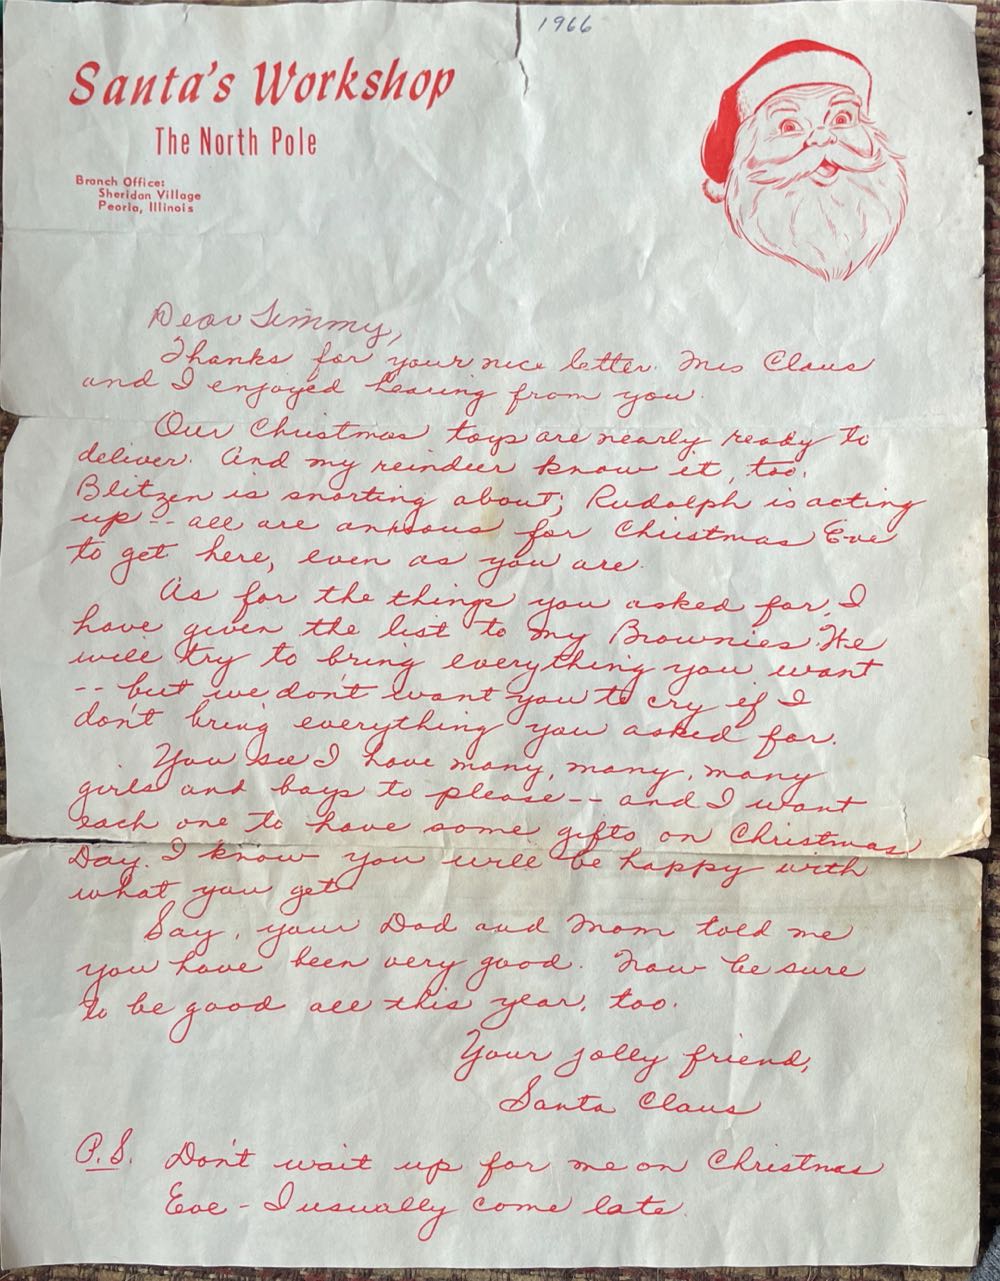 1966
Santa's Workshop
The North Pole
Branch Office:
Sheridan Village
Peoria, Illinois
Dear Timmy,
Thanks for your nice letter. Mrs Claus
and I enjoyed hearing from you.
Our Christmas toys are nearly ready to
deliver. And my reindeer know it, too.
Blitzen is snorting about; Rudolph is acting
up -- all are anxious for Christmas Eve
to get here, even as you are.
As for the things you asked for, I
have given the list to my Brownies. We
will try to bring everything you want
-- but we don't want you to cry if I
don't bring everything you asked for.
You see I have many, many, many
girls and boys to please -- and I want
each one to have some gifts on Christmas
Day. I know you will be happy with
what you get.
Say, your Dad and Mom told me
you have been very good. Now be sure
to be good all this year, too.
Your jolly friend,
Santa Claus
P.S. Don't wait up for me on Christmas
Eve - I usually come late.